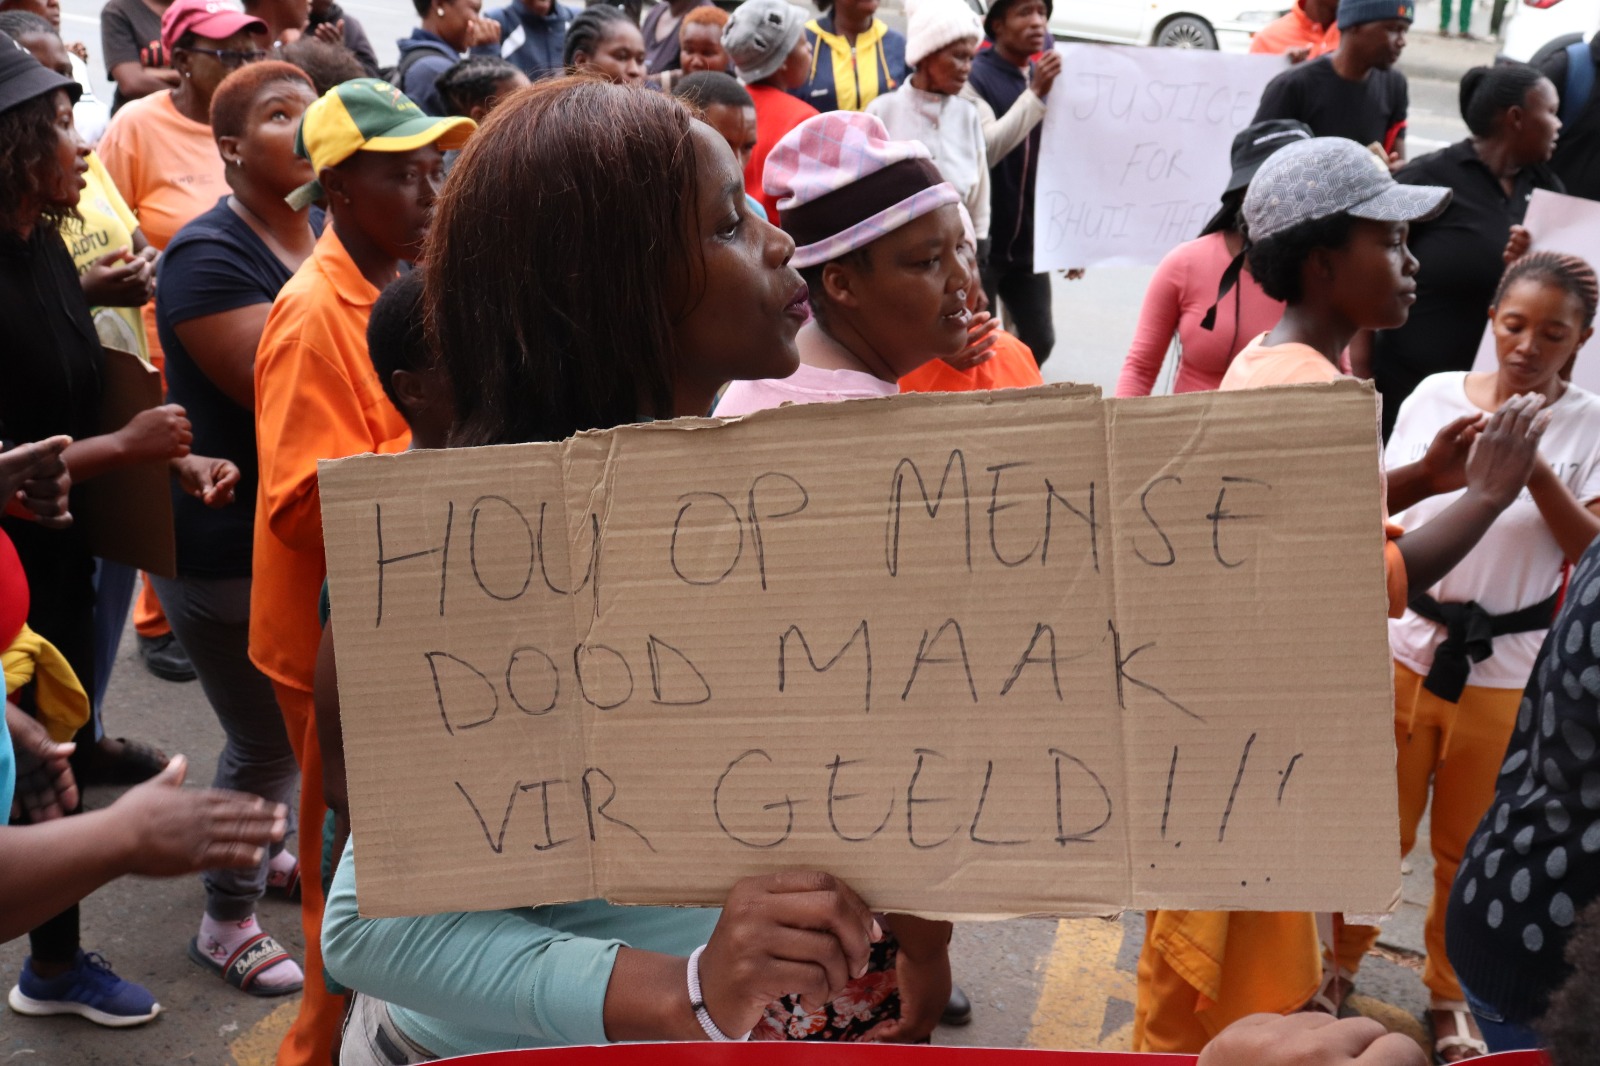 JUSTICE
FOR
BHUTI
HOU OP MENSE
DOOD MAAK
VIR GEELD!!!